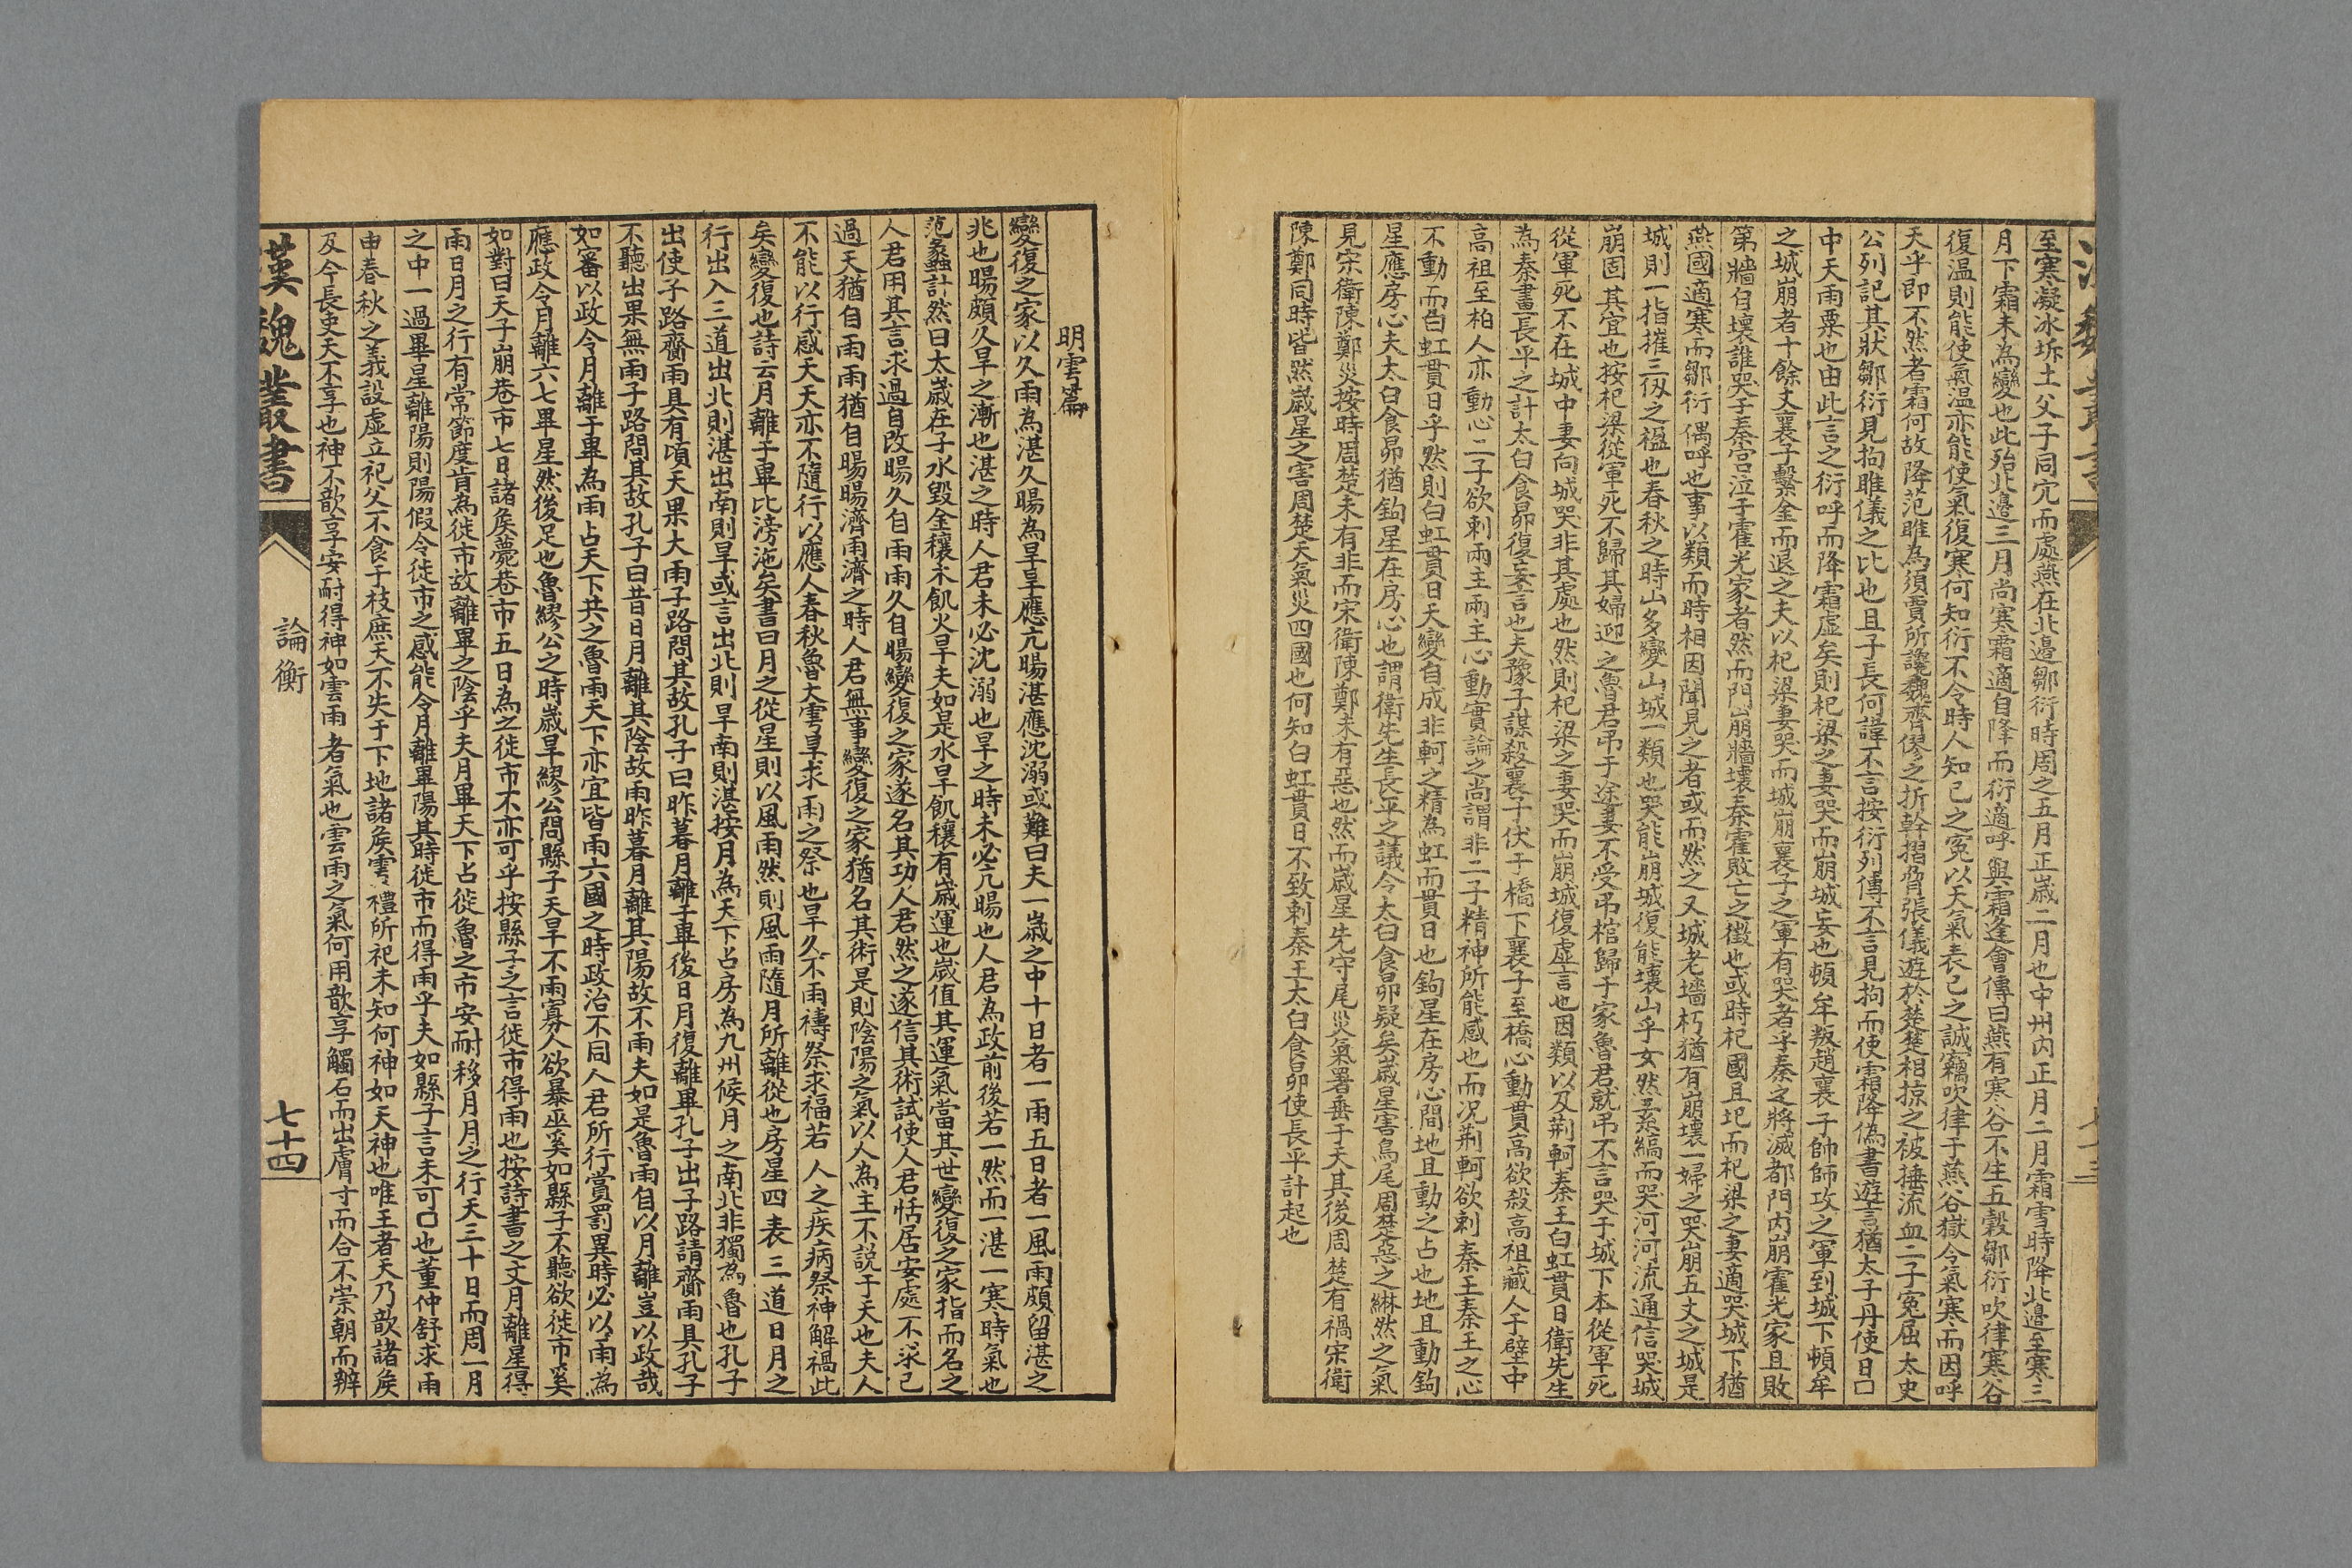 至寒凝冰坼土父子同穴而處燕在北邉鄒衍時周之五月正歲二月也中州內正月二月霜雪時降北邉至寒三
月下霜未為變也此殆北邉三月尚寒霜適自降而衍適呼與霜逢會傳曰燕有寒谷不生五穀鄒衍吹律寒谷
復温則能使氣温亦能使氣復寒何知衍不令時人知己之冤以天氣表己之誠竊吹律于燕谷獄令氣寒而因呼
天乎即不然者霜何故降范雎為須賈所讒魏齊僇之折幹摺脅張儀遊於楚楚相掠之被捶流血二子冤屈太史
公列記其狀鄒衍見拘雎儀之比也且子長何諱不言按衍列傳不言見拘而使霜降偽書遊言猶太子丹使日囗
中天雨粟也由此言之衍呼而降霜虛矣則杞梁之妻哭而崩城妄也頓牟叛趙襄子帥師攻之軍到城下頓牟
之城崩者十餘丈襄子擊金而退之夫以杞梁妻哭而城崩襄子之軍有哭者乎秦之將滅都門內崩霍光家且敗
第牆自壞誰哭于秦宮泣于霍光家者然而門崩牆壞秦霍敗亡之徵也或時杞國且圯而杞梁之妻適哭城下猶
燕國適寒而鄒衍偶呼也事以類而時相因聞見之者或而然之又城老墻朽猶有崩壞一婦之哭崩五丈之城是
城則一指摧三仭之楹也春秋之時山多變山城一類也哭能崩城復能壞山乎女然素縞而哭河河流通信哭城
崩固其宜也按杞梁從軍死不歸其婦迎之魯君弔于途妻不受弔棺歸于家魯君就弔不言哭于城下本從軍死
從軍死不在城中妻向城哭非其處也然則杞梁之妻哭而崩城復虛言也因類以及荆軻秦王白虹貫日衛先生
為秦畫長平之計太白食昴復妄言也夫豫子謀殺襄子伏于橋下襄子至橋心動貫高欲殺高祖藏人于壁中
高祖至柏人亦動心二子欲刺兩主兩主心動實論之尚謂非二子精神所能感也而况荆軻欲刺秦王秦王之心
不動而白虹貫日乎然則白虹貫日天變自成非軻之精為虹而貫日也鉤星在房心間地且動之占也地且動鉤
星應房心夫太白食昴猶鉤星在房心也謂衛先生長平之議令太白食昴疑矣歲星害鳥尾周楚惡之綝然之氣
見宋衛陳鄭災按時周楚未有非而宋衛陳鄭未有惡也然而歲星先守尾災氣署垂于天其後周楚有禍宋衛
陳鄭同時皆然歲星之害周楚天氣災四國也何知白虹貫日不致刺秦王太白食昴使長平計起也
明雩篇
變復之家以久雨為湛久暘為旱旱應亢暘湛應沈溺或難曰夫一歲之中十日者一雨五日者一風雨頗留湛之
兆也暘頗久旱之漸也湛之時人君未必沈溺也旱之時未必亢暘也人君為政前後若一然而一湛一寒時氣也
范蠡計然曰太歲在子水毀金穰木飢火旱夫如是水旱飢穰有歲運也歲值其運氣當其世變復之家指而名之
人君用其言求過自改暘久自雨雨久自暘變復之家遂名其功人君然之遂信其術試使人君恬居安處不求己
過天猶自雨雨猶自暘暘濟雨濟之時人君無事變復之家猶名其術是則陰陽之氣以人為主不説于天也夫人
不能以行感天天亦不隨行以應人春秋魯大雩旱求雨之祭也旱久不雨禱祭求福若人之疾病祭神解禍此
矣變復也詩云月離于畢比滂沲矣書曰月之從星則以風雨然則風雨隨月所離從也房星四表三道日月之
行出入三道出北則湛出南則旱或言出北則旱南則湛按月為天下占房為九州候月之南北非獨為魯也孔子
出使子路齎雨具有頃天果大雨子路問其故孔子曰昨暮月離于畢後日月復離畢孔子出子路請齎雨具孔子
不聽出果無雨子路問其故孔子曰昔日月離其陰故雨昨暮月離其陽故不雨夫如是魯雨自以月離豈以政哉
如審以政令月離于畢為雨占天下共之魯雨天下亦宜皆雨六國之時政治不同人君所行賞罰異時必以雨為
應政令月離六七畢星然後足也魯繆公之時歲旱繆公問縣子天旱不雨寡人欲暴巫奚如縣子不聽欲徙市奚
如對曰天子崩巷市七日諸矦薨巷市五日為之徙市不亦可乎按縣子之言徙市得雨也按詩書之文月離星得
雨日月之行有常節度肯為徙市故離畢之陰乎夫月畢天下占徙魯之市安耐移月月之行天三十日而周一月
之中一過畢星離陽則陽假令徙市之感能令月離畢陽其時徙市而得雨乎夫如縣子言未可囗也董仲舒求雨
申春秋之義設虛立祀父不食于枝庶天不失于下地諸矦雩禮所祀未知何神如天神也唯王者天乃歆諸矦
及今長吏天不享也神不歆享安耐得神如雲雨者氣也雲雨之氣何用歆享觸石而出膚寸而合不崇朝而辨
漢魏叢書
論衡
七十四